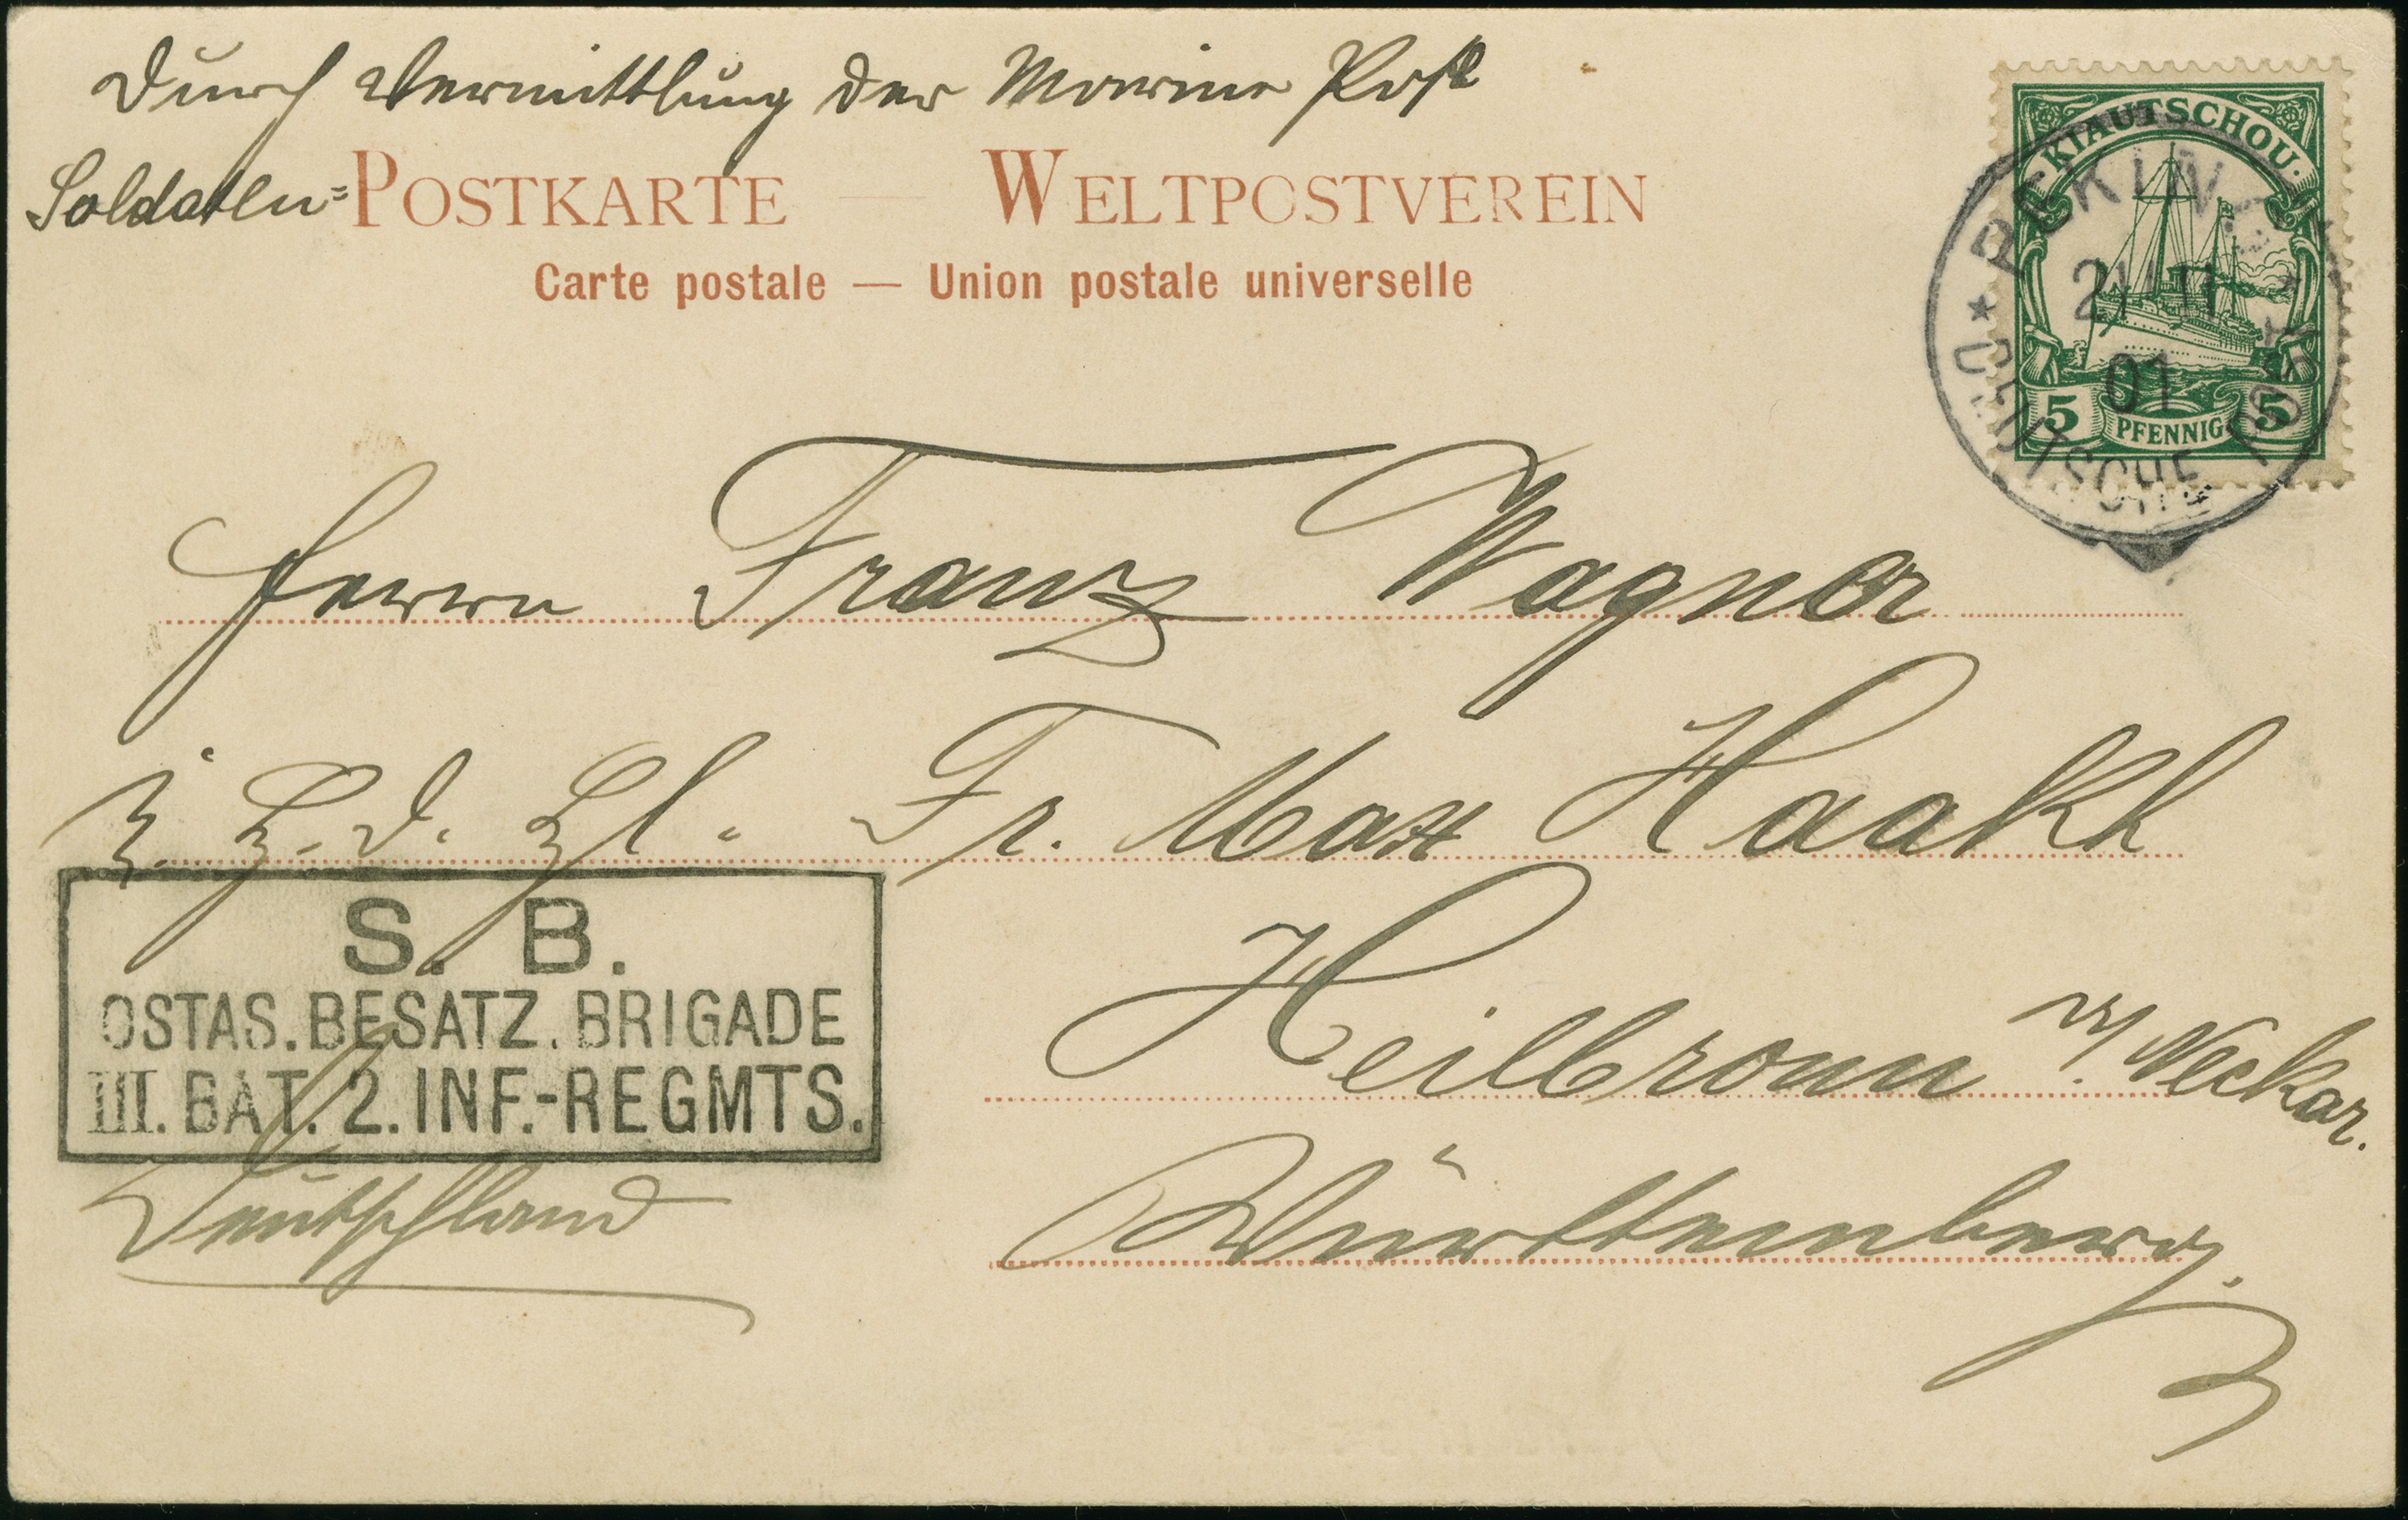 Durch Vermittlung der Marine Post
Soldaten=POSTKARTE — WELTPOSTVEREIN
Carte postale — Union postale universelle
KIAUTSCHOU.
5 PFENNIG 5
PEKING
01
DEUTSCHE POST
Herrn Franz Wagner
Fr. Max Haakh
Heilbronn a/Neckar.
S. B.
OSTAS. BESATZ. BRIGADE
III. BAT. 2. INF.-REGMTS.
Deutschland
Württemberg.